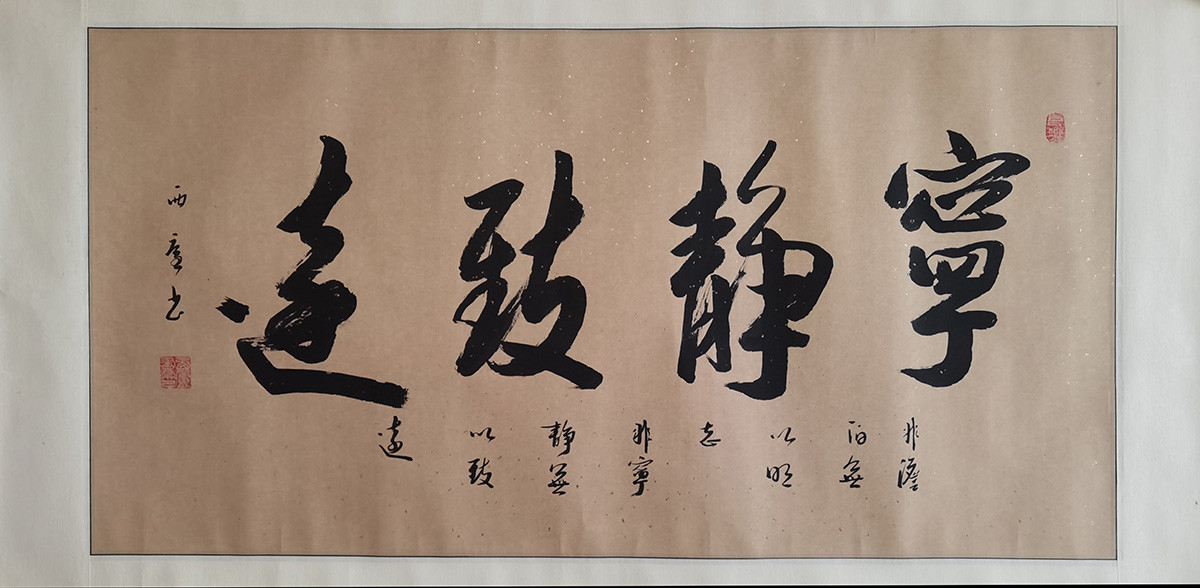 寧靜致遠
非澹
泊無
以明
志
非寧
靜無
以致
遠
西廬书